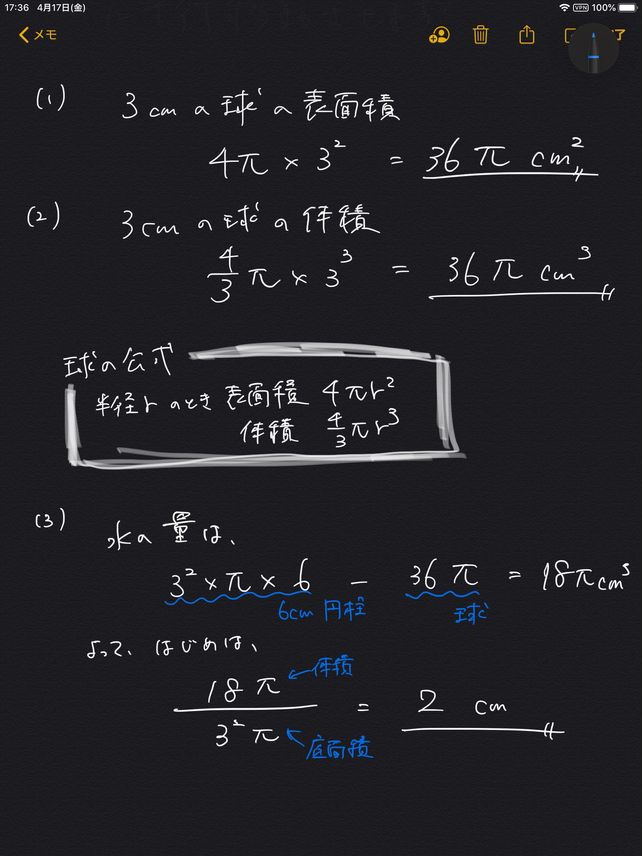 17:36 4月17日(金) VPN 100%
メモ 了
(1) 3cmの球の表面積
4π × 3² = 36π cm²
(2) 3cmの球の体積
4/3 π × 3³ = 36π cm³
球の公式
半径rのとき 表面積 4πr²
体積 4/3 πr³
(3) 水の量は、
3² × π × 6 − 36π = 18π cm³
6cm 円柱 球
よって、はじめは、
18π ← 体積
3²π ← 底面積
= 2 cm